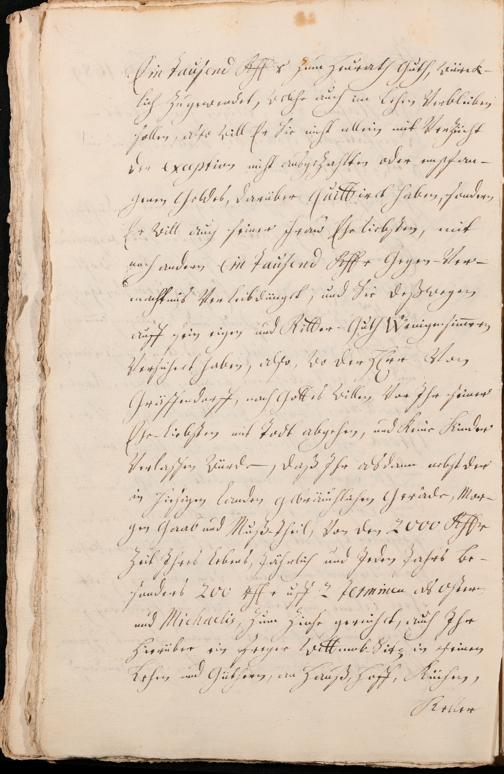 Ein tausend Rffr zum Heurath Guth, würck-
lich zugewendet, welche auch im Lehn Verbleiben
sollen, also will Er Sie nicht allein mit Verzücht
der exception nicht außgezahlten oder empfan-
genen Geldes, darüber Quittiret haben, sondern
Er will auch seiner Frau Eheliebsten, mit
noch andern Ein tausend Rffr Gegen-Ver-
mächtnüs Verleibdinget, und Sie deßwegen
auff sein eigen und Ritter-Guth Wenigensömmern
Versichert haben, also, wo der Herr Von
Gräffendorff, nach Gottes Willen Vor Ihr seiner
Eheliebsten mit Todt abgehen, und Keine Kinder
Verlassen würde, daß Ihr alsdann nebst der
in hiesigen Landen gebräuchlichen Gerade, Mor-
gen Gaab und Muß-Theil, Von den 2000 Rffr
Zeit Ihres Lebens, Jährlich und Jedes Jahrs be-
sonders 200 Rffr uff 2 Terminen als Ostern
und Michaelis, zum Zinße gereicht, auch Ihr
hierüber ein freyer Wittwob Sitz in seinen
Lehn und Güthern, an Hauß, Hoff, Küchen,
Keller